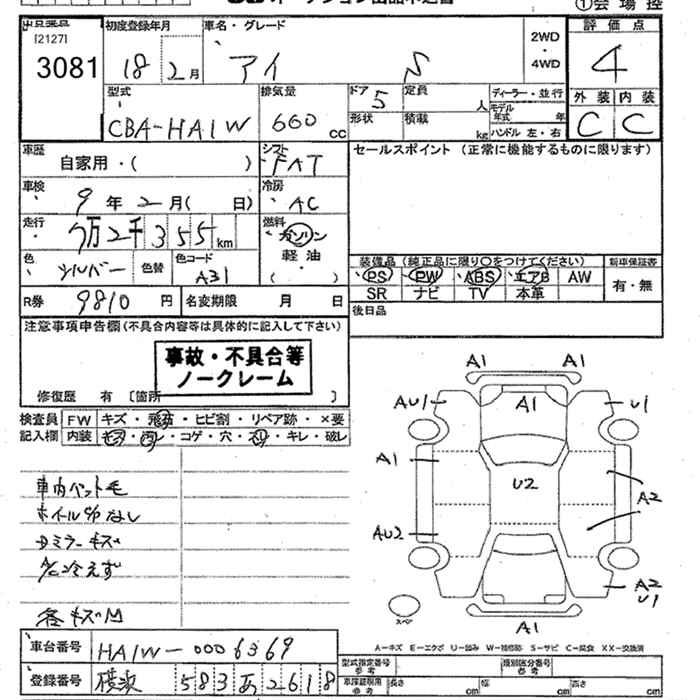 ①会場控
[2127]
3081
初度登録年月
18 2月
車名・グレード
アイ S
2WD
・
4WD
評価点
4
型式
CBA-HA1W
排気量
660 cc
ドア 5
形状
定員 人
積載 kg
ディーラー・並行
モデル年式 年
ハンドル 左・右
外装 内装
C C
車歴
自家用・( )
シフト
FAT
セールスポイント (正常に機能するものに限ります)
車検
9年2月( 日)
冷房
AC
走行
7万2千355km
燃料
ガソリン
軽油
( )
色
シルバー
色替
色コード
A31
装備品 (純正品に限り〇をつけてください)
PS PW ABS エアB AW
SR ナビ TV 本革
新車保証書
有・無
R券 9810円
名変期限 月 日
後日品
注意事項申告欄(不具合内容等は具体的に記入して下さい)
事故・不具合等
ノークレーム
修復歴 有 〔箇所 〕
検査員
記入欄
FW キズ・飛石・ヒビ割・リペア跡・×要
内装 キズ・汚レ・コゲ・穴・スリ・キレ・破レ
車内ペット毛
ホイールカバなし
ミラーキズ
A/C冷えず
各キズ凹
A1 A1
AU1 A1 U1
A1
U2
A2
AU2
A2
U1
スペア
A1
A-キズ E-エクボ U-凹み W-補修跡 S-サビ C-腐食 XX-交換済
車台番号 HA1W-0006369
登録番号 横浜 583 あ 2618
型式指定番号 参考
類別区分番号 参考
車庫証明用 参考 長さ cm 幅 cm 高さ cm